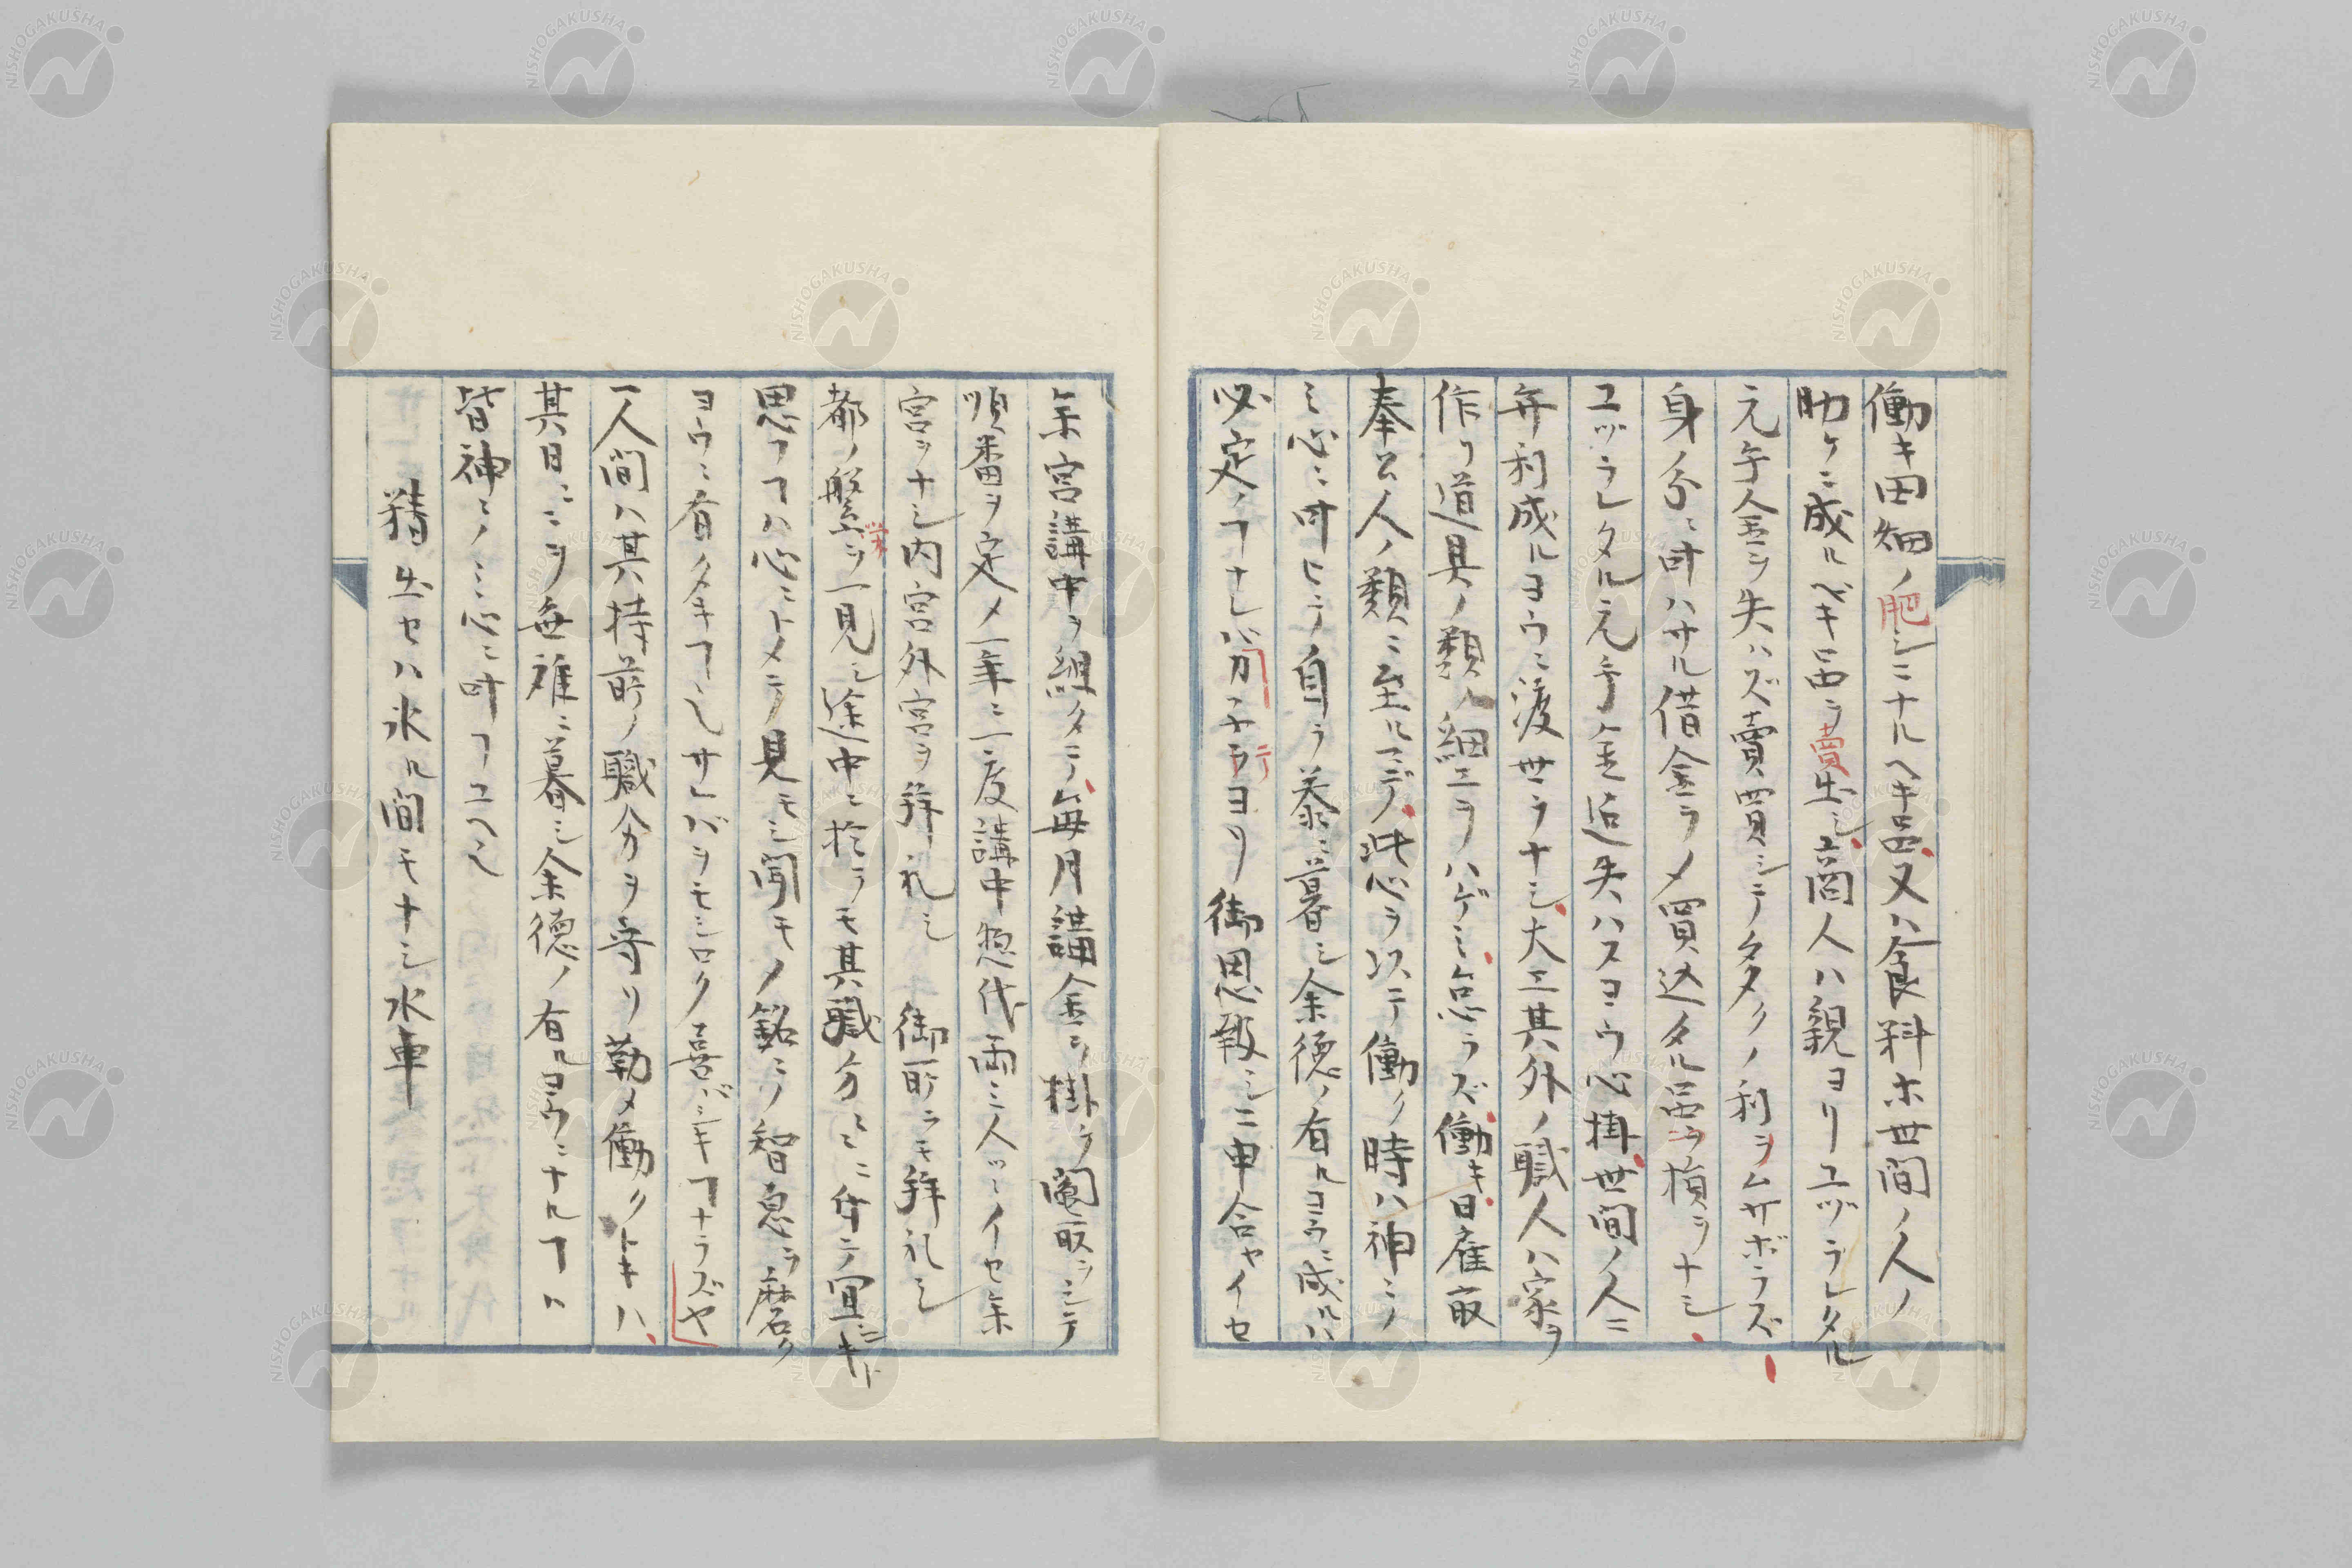 働キ田畑ノ肥シニナルヘキ品又ハ食料ホ世間ノ人ノ
助ケニ成ルベキ品ヲ賣出シ商人ハ親ヨリユヅラレタル
元手金ヲ失ハズ賣買シテタタクノ利ヲムサボラズ
身分ニ叶ハサル借金ヲメ買込タル品ヲ損ヲナシ
ユヅラレタル元手金迄失ハスヨウ心掛世間ノ人ニ
弁利成ルヨウニ渡世ヲナシ大工其外ノ職人ハ家ヲ
作リ道具ノ類ノ細工ヲハゲミ怠ラズ働キ日雇取
奉公人ノ類ニ至ルマデノ此心ヲ以テ働ク時ハ神ミノ
ミ心ニ叶ヒテ自ラ泰ニ暮シ余徳ノ有ルヨウニ成ルハ
必定ノヿナレ 御恩報シニ申合セヤイセ
宮講中ヲ組タテノ毎月講金ヲ掛ケ鬮取ヲシテ
順番ヲ定メ一年ニ二度講中惣代両三人ツヽイセ
宮ヲナシ内宮外宮ヲ拜礼シ 御所ヲモ拜礼シ
都ノ繁栄ヲ一見シ途中ニ於テモ其職分ミニ付テ宜キ
思フヿハ心ニトメテ見モシ聞モノ銘ミノ智恵ヲ磨ク
ヨウニ有タキヿ也サレバヲモシロク喜バシキヿナラズヤ
一人間ハ其持前ノ職分ヲ守リ勤メ働クトキハ
其日ミニヲ無難ニ暮シ余徳ノ有ルヨウニナルヿハ
皆神ミノミ心ニ叶フユヘ也
精出セハ氷ル間モナシ水車
NISHOGAKUSHA